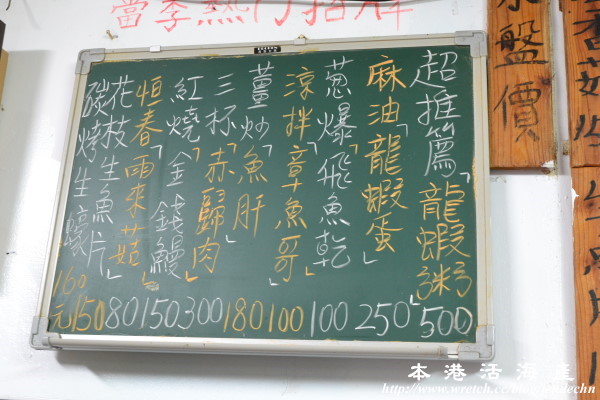 當季熱門招牌
超推篇「龍蝦粥」500
麻油「龍蝦蛋」250
蔥爆「飛魚乾」100
涼拌「章魚哥」100
薑炒「魚肝」180
三杯「赤歸肉」300
紅燒「金錢鰻」150
恒春「雨來菇」80
花枝生魚片150
碳烤生蠔160元
盤價
本港活海產